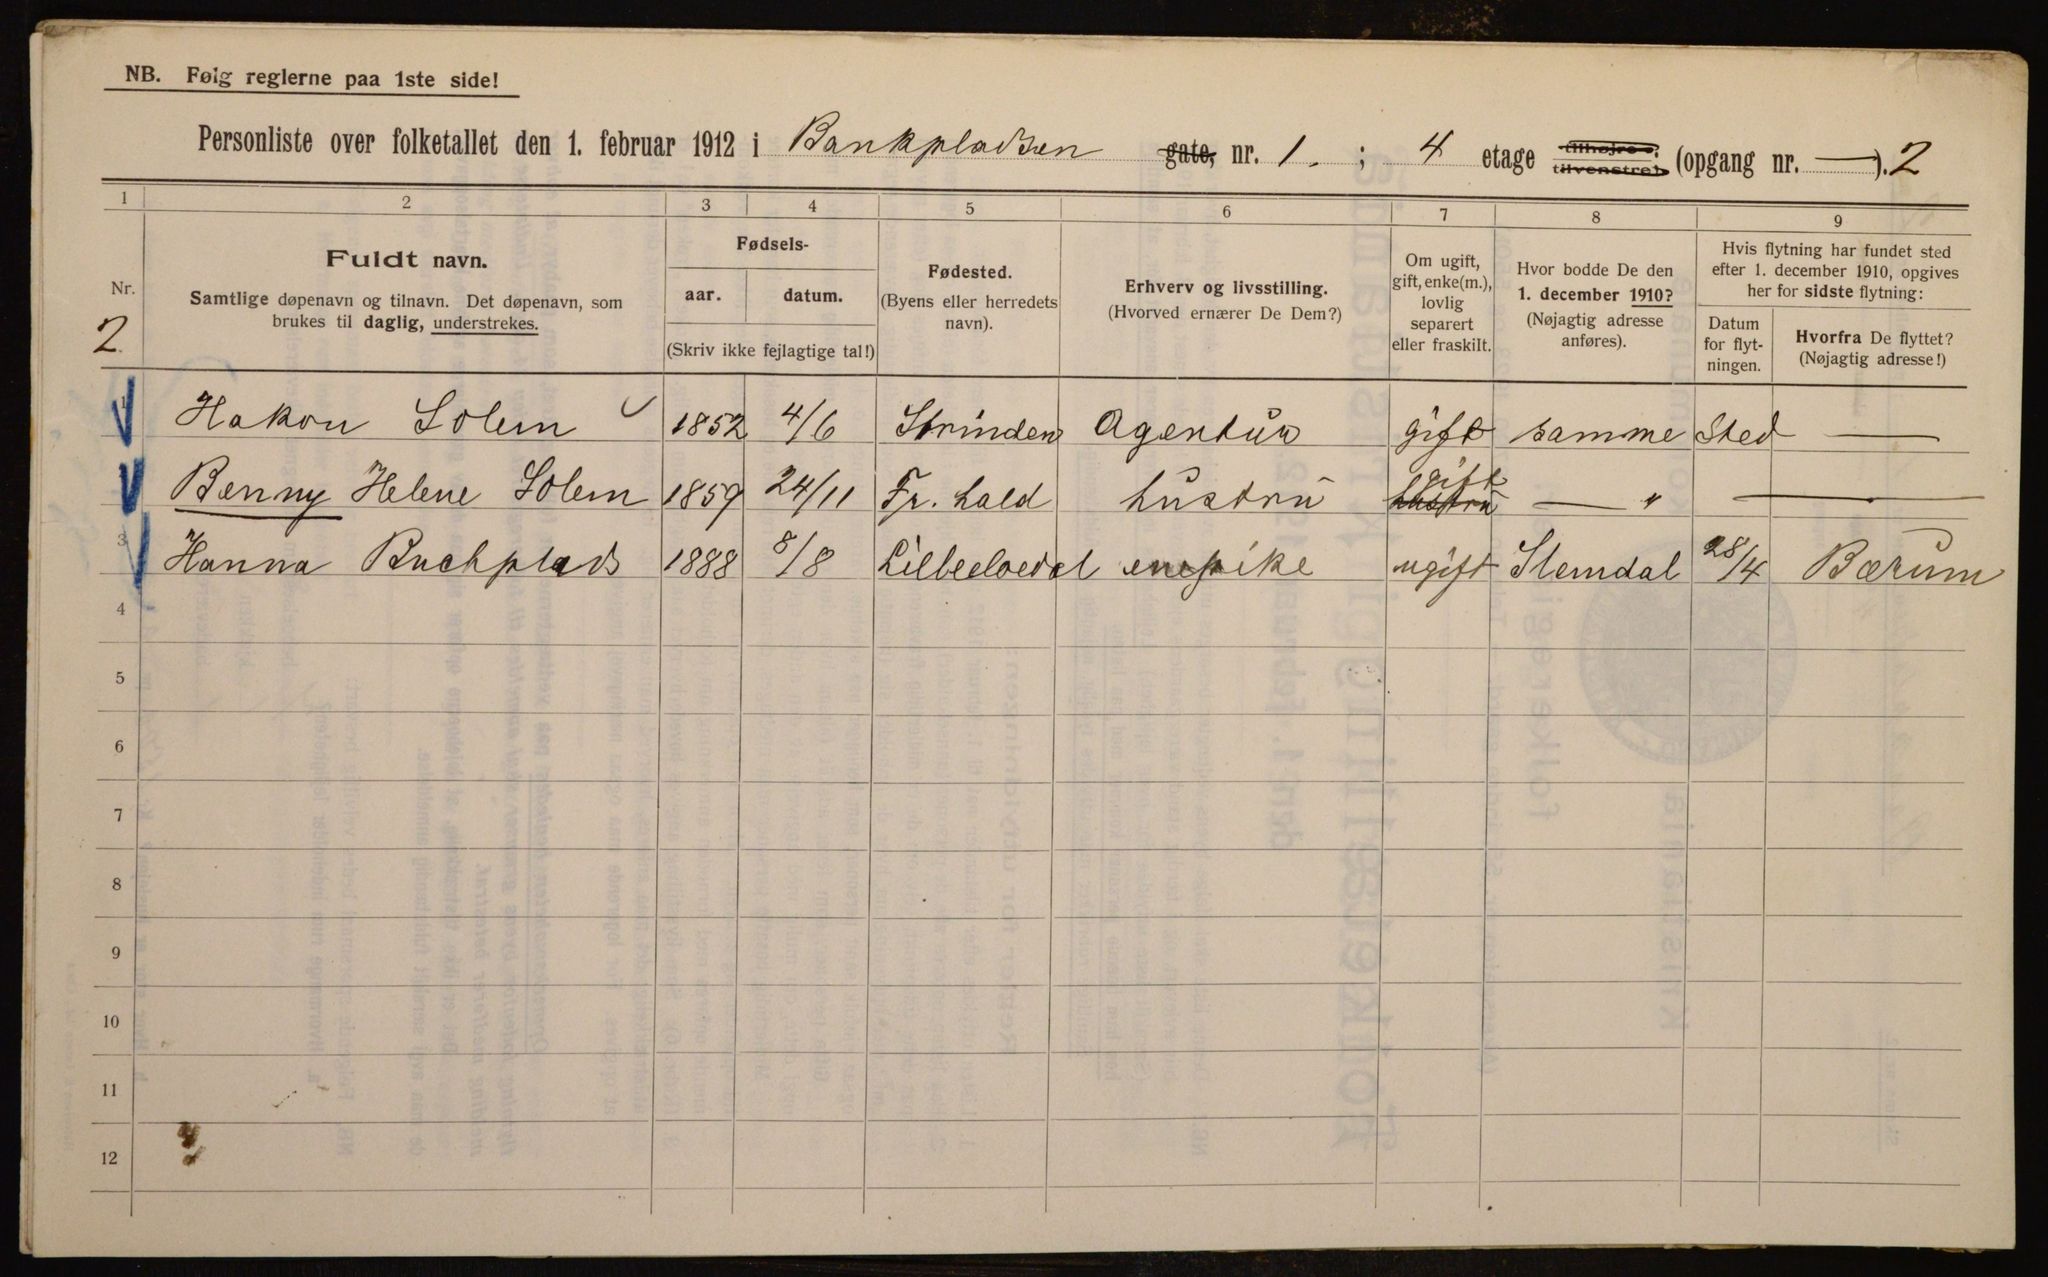 NB. Følg reglerne paa 1ste side!
Personliste over folketallet den 1. februar 1912 i Bankpladsen gate, nr. 1. ; 4 etage tilhøjre (opgang nr. — ). 2
tilvenstre
1 2 3 4 5 6 7 8 9
Nr.
2
Fuldt navn.
Samtlige døpenavn og tilnavn. Det døpenavn, som
brukes til daglig, understrekes.
Fødsels-
aar. datum.
(Skriv ikke fejlagtige tal!)
Fødested.
(Byens eller herredets
navn).
Erhverv og livsstilling.
(Hvorved ernærer De Dem?)
Om ugift,
gift, enke(m.),
lovlig
separert
eller fraskilt.
Hvor bodde De den
1. december 1910?
(Nøjagtig adresse
anføres).
Hvis flytning har fundet sted
efter 1. december 1910, opgives
her for sidste flytning:
Datum
for flyt-
ningen.
Hvorfra De flyttet?
(Nøjagtig adresse!)
Hakon Solem 1852 4/6 Strinden Agentur gift samme Sted —
Benny Helene Solem 1859 24/11 Fr. hald hustru hustru gift — " —
3 Hanna 1888 8/8 ugift Slemdal 28/4 Bærum
4
5
6
7
8
9
10
11
12